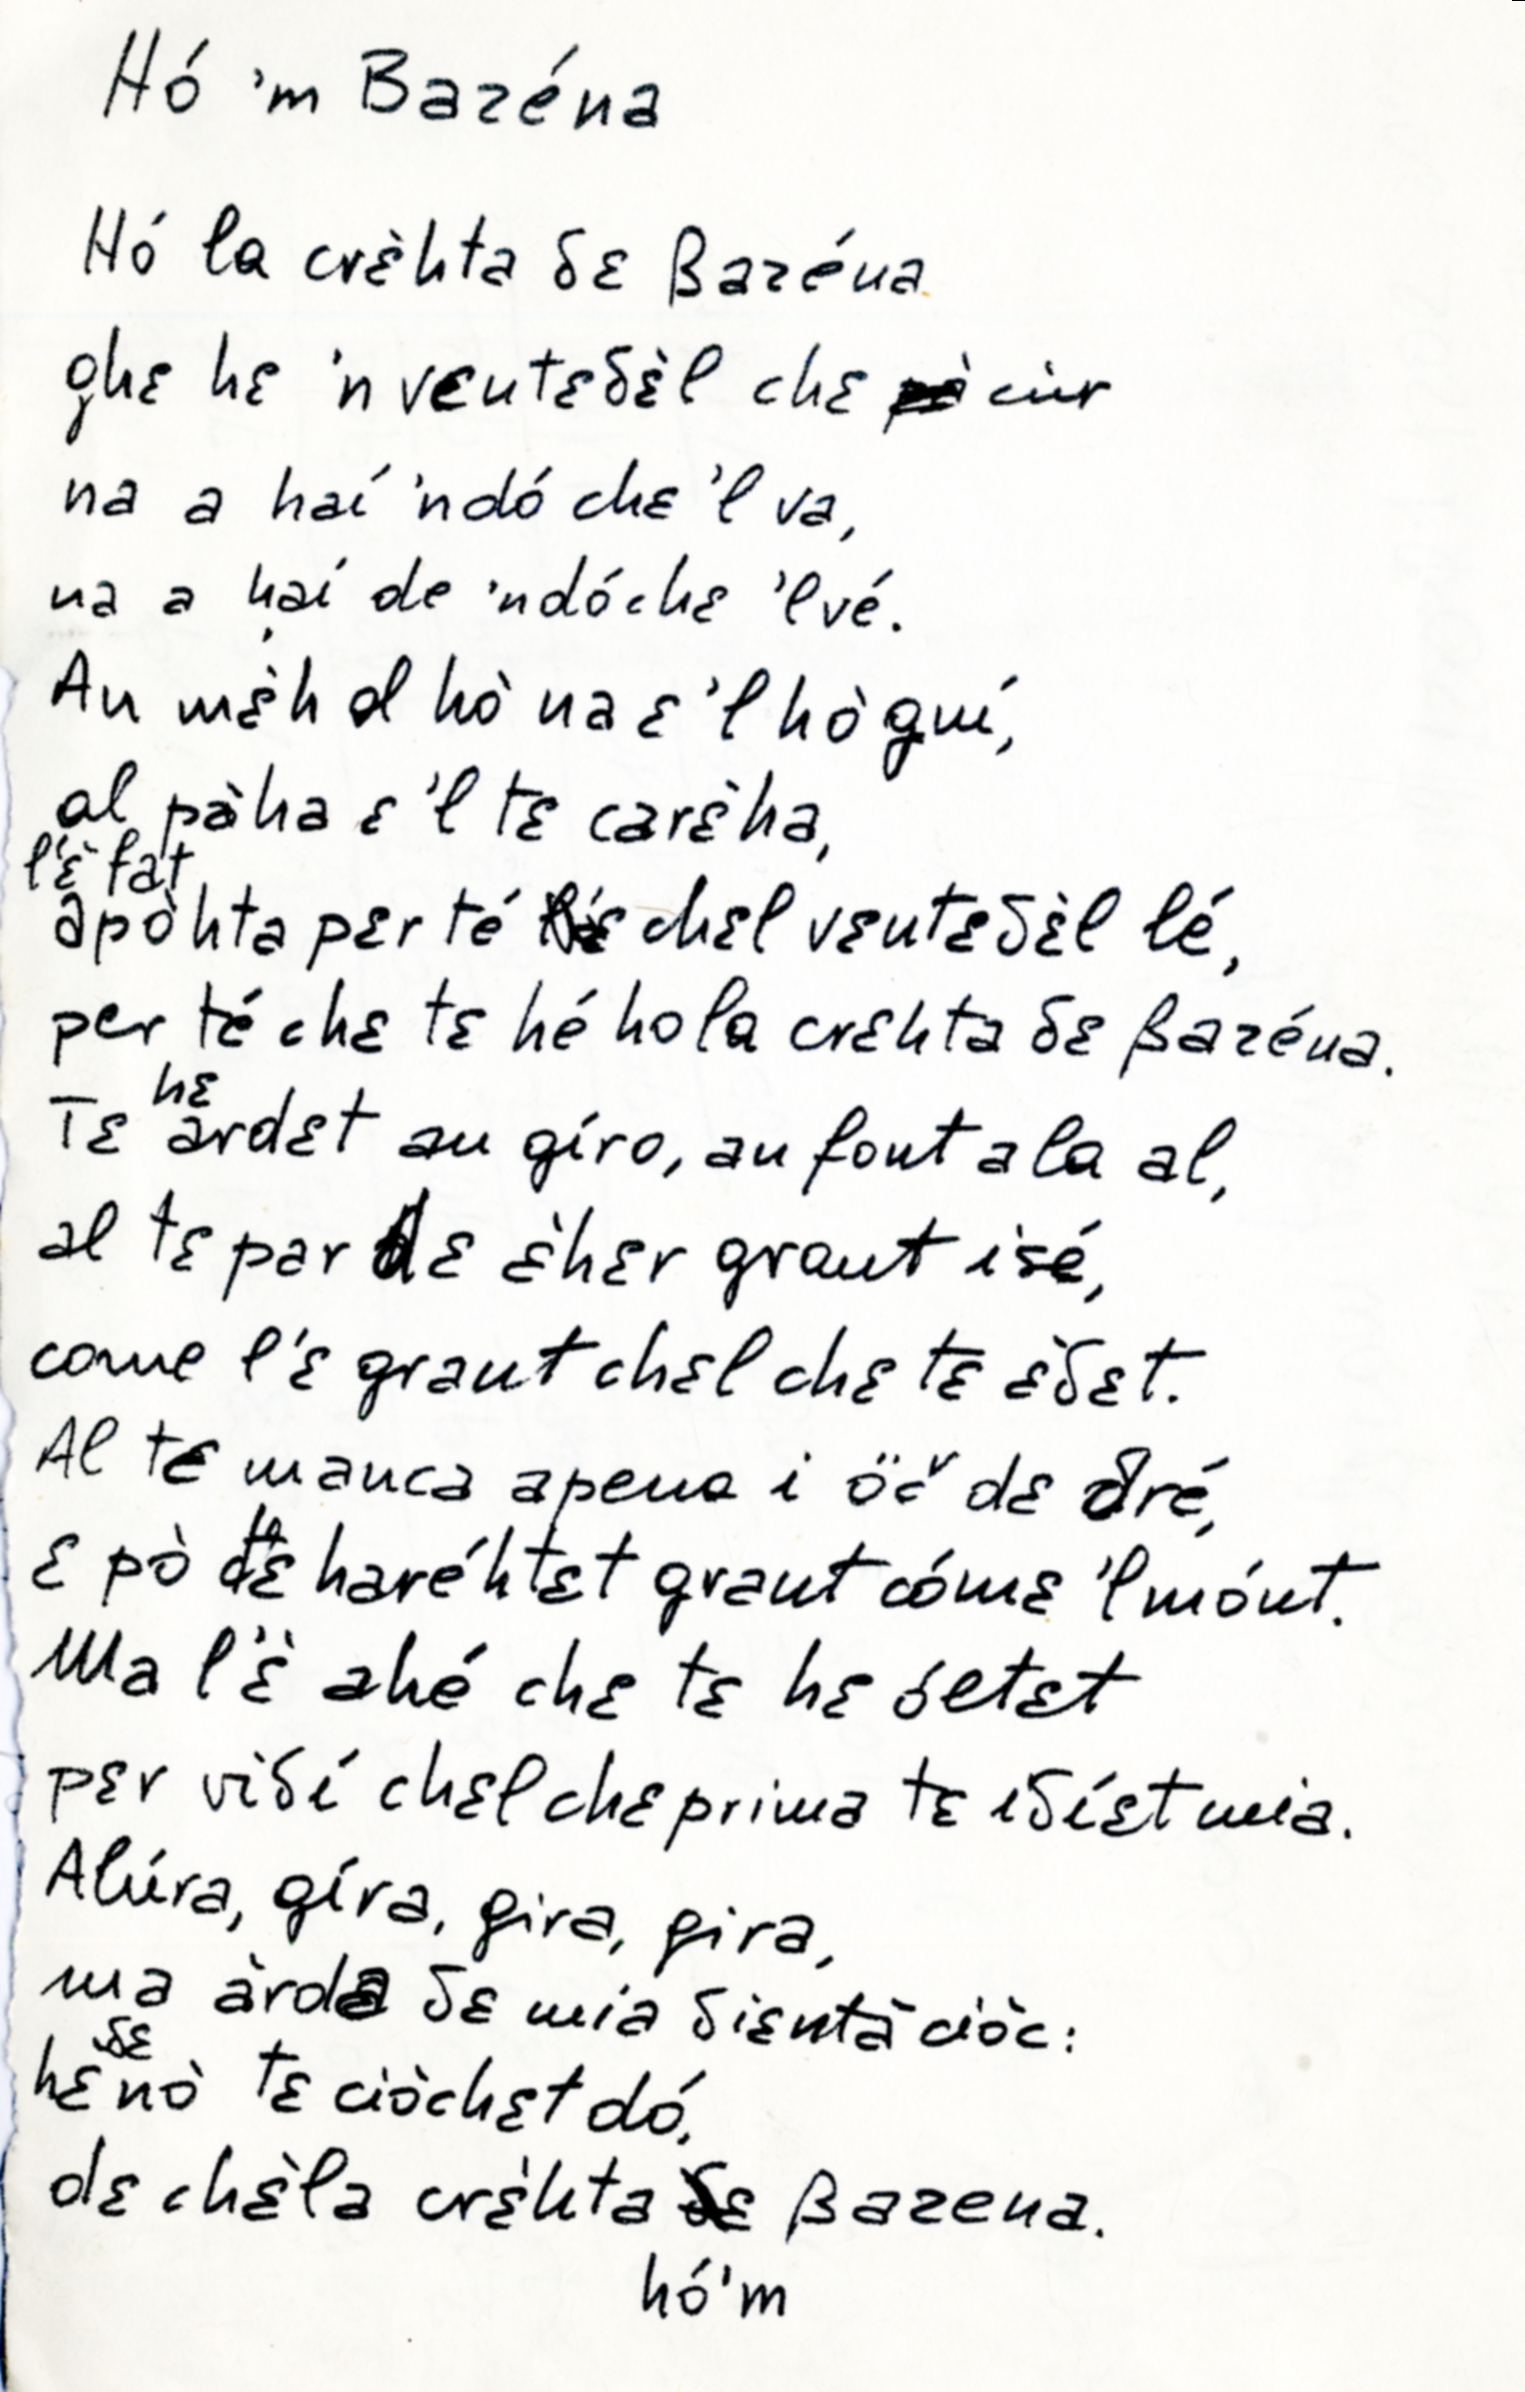 Hó 'm Bazéna
Hó la crèhta δε Bazéna
ghε hε 'n ventεδèl chε cùr
na a haí 'ndó chε 'l va,
na a haí de 'ndóchε 'l vé.
An mèh al hò na ε 'l hò gní,
al pàha ε 'l tε carèha,
l'è fat
apòhta pεr té chεl vεntεδèl lé,
per té chε tε hé ho la crεhta δε Bazéna.
hε
Tε ardεt an gíro, an font a la al,
al tε par dε èhεr grant isé,
come l'ε grant chεl chε tε èδεt.
Al tε manca apena i öč dε dré,
ε pò tε haréhtεt grant cómε 'l mónt.
Ma l'è ahé chε tε hε óltεt
pεr vìδí chεl chε prima tε ìδíεt mia.
Alúra, gíra, gira, gira,
ma àrda δε mia δiεntà ciòc:
δε
hε nò tε ciòchεt dó,
dε chèla crèhta Bazena.
hó 'm